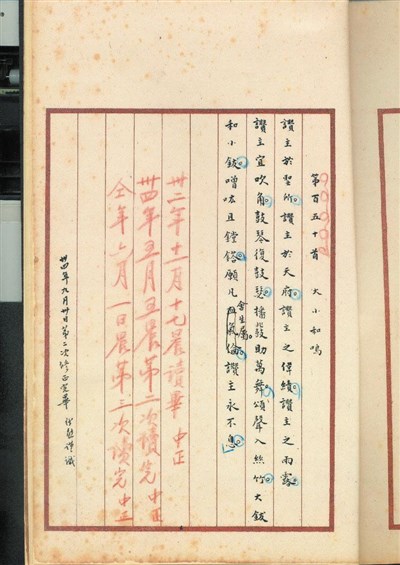 第百五十首　大小和鳴
讚主於聖所讚主於天府讚主之偉績讚主之雨露
讚主宜吹角鼓琴復鼓瑟播鼗助萬舞頌聲入絲竹大鈸
和小鈸噌吰且鏜鎝願凡
含生屬。
血氣倫讚主永不息
卅二年十一月十七晨讀畢 中正
卅四年五月五晨第二次讀完 中正
仝年六月一日晨第三次讀完 中正
卅四年九月卅日第二次修正完畢